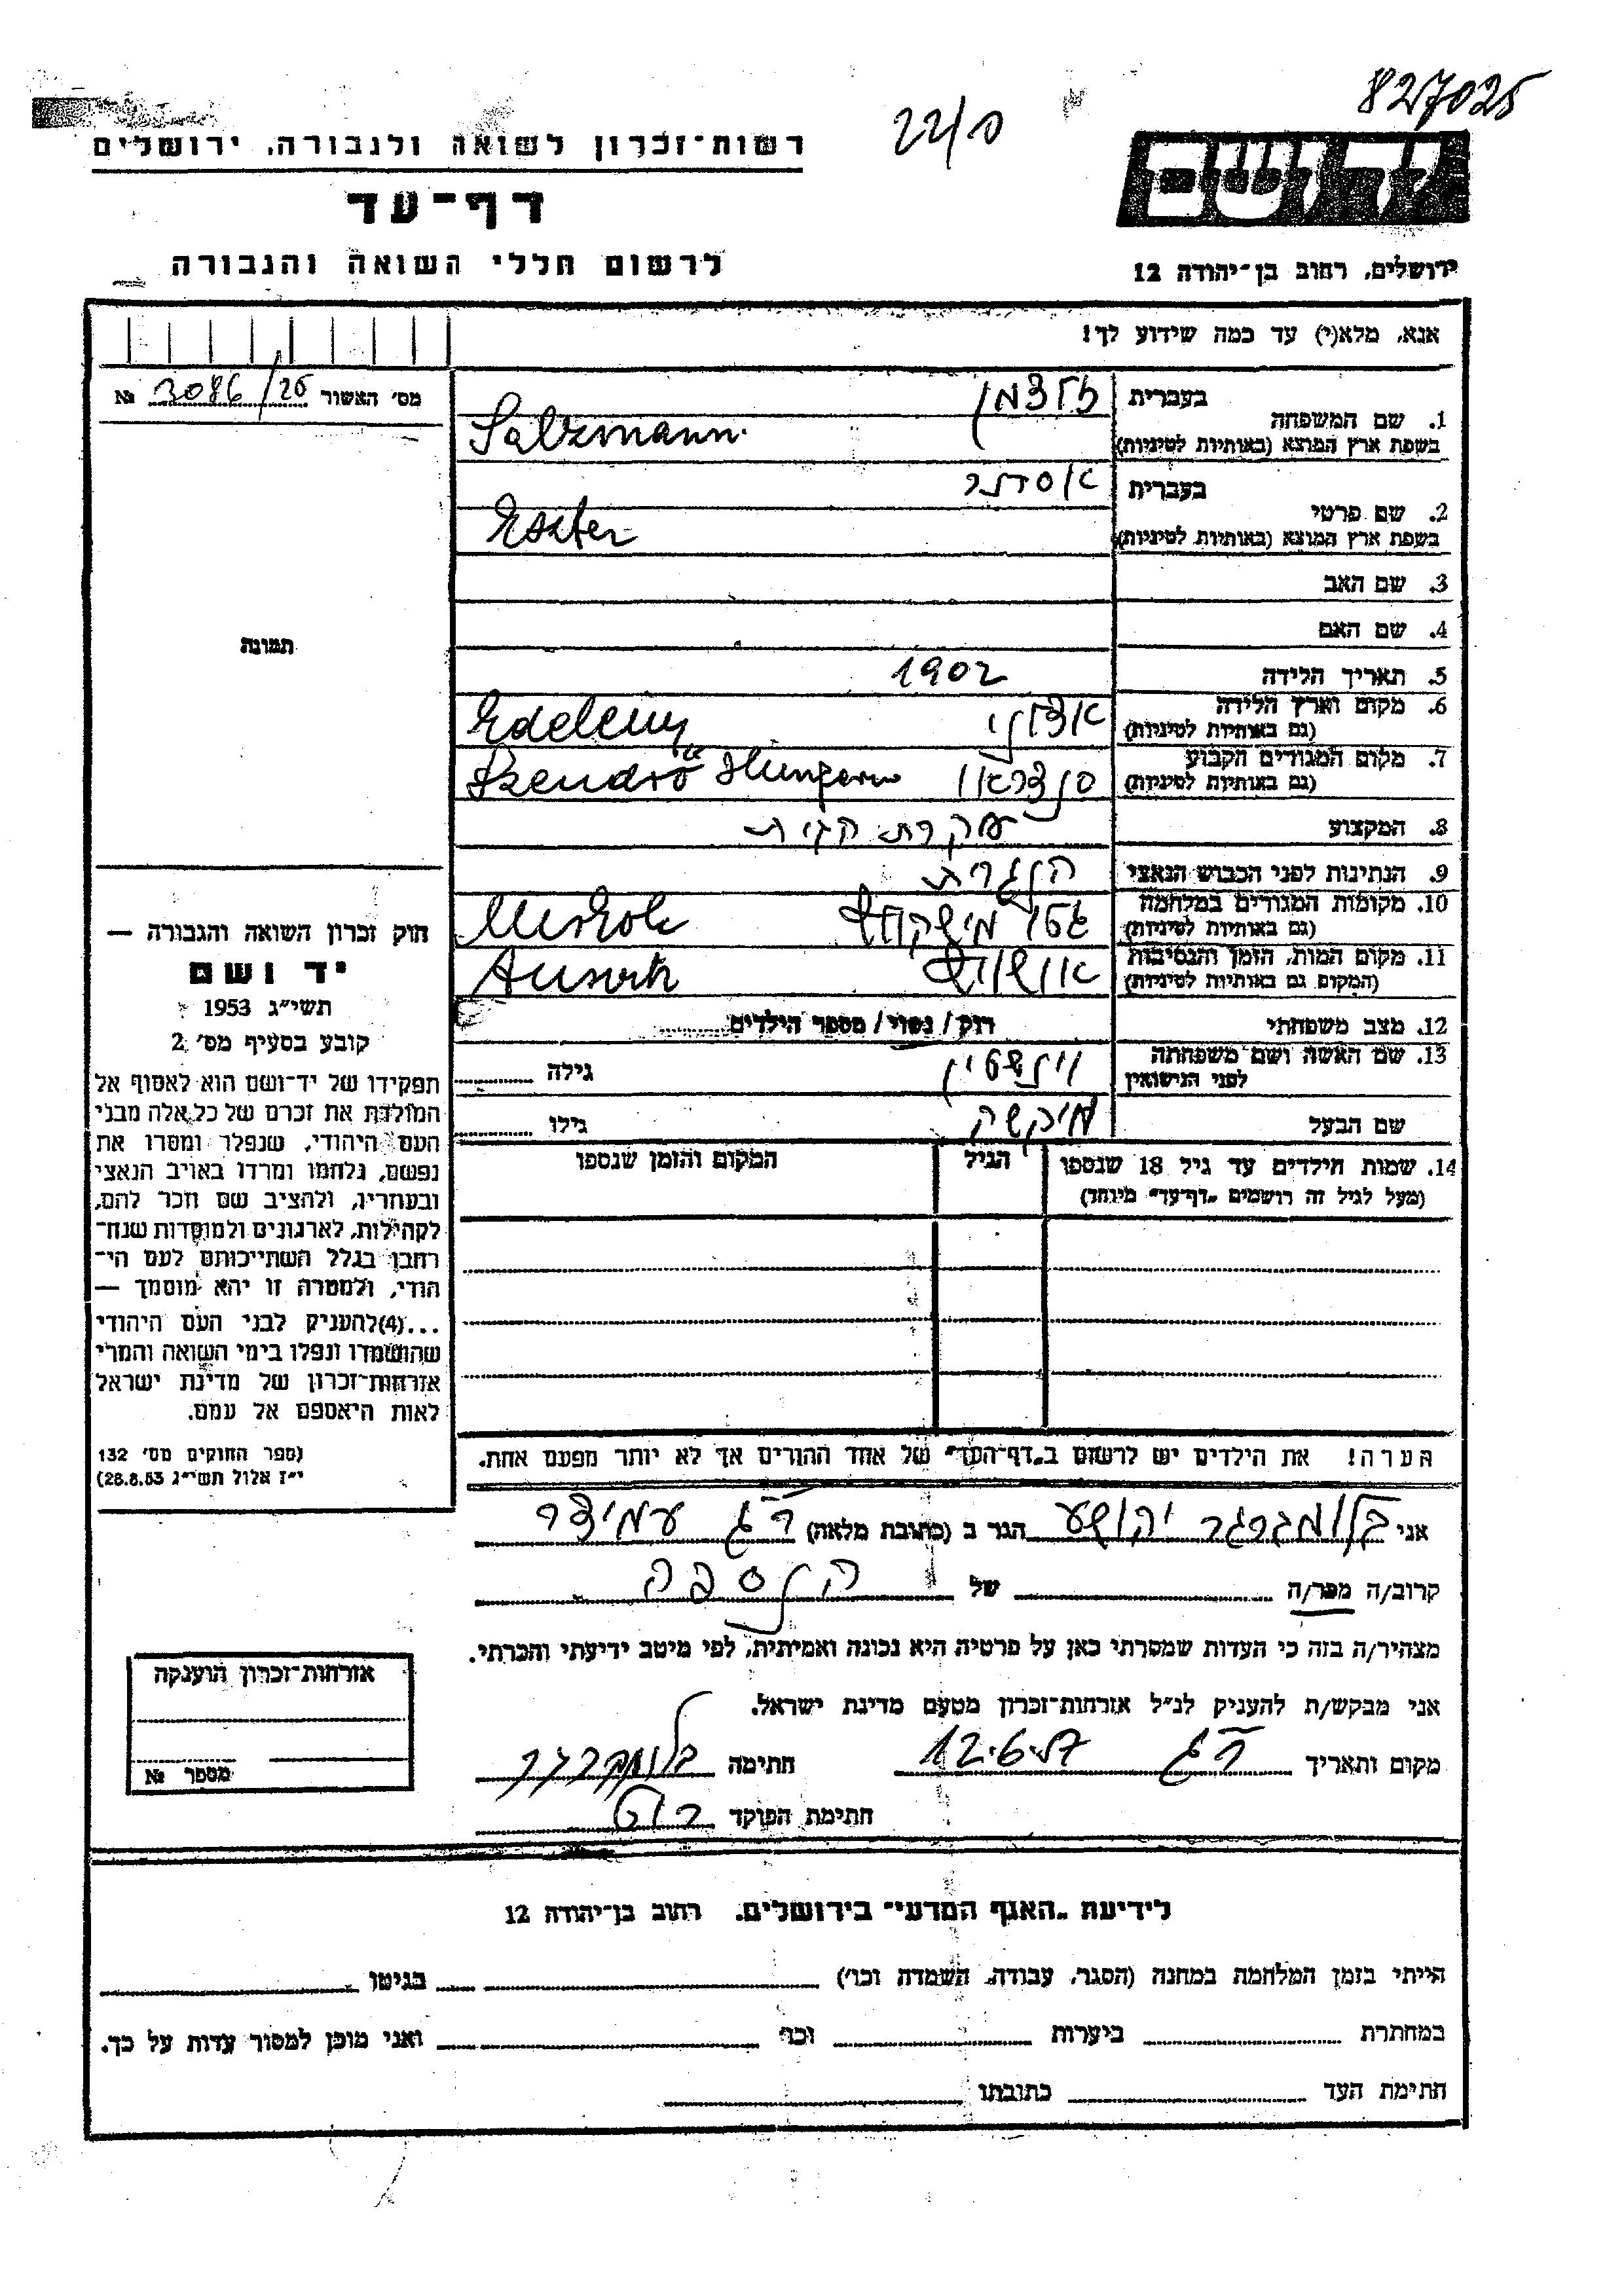 827025
22/ס
רשות־זכרון לשואה ולגבורה, ירושלים
דף־עד
לרשום חללי השואה והגבורה
יד ושם
ירושלים, רחוב בן־יהודה 12
אנא, מלא(י) עד כמה שידוע לך!
מס׳ האשור 3086/26 №
1. שם המשפחה
בעברית זלצמן
בשפת ארץ המוצא (באותיות לטיניות) Salzmann
2. שם פרטי
בעברית אסתר
בשפת ארץ המוצא (באותיות לטיניות) Eszter
3. שם האב
4. שם האם
5. תאריך הלידה 1902
6. מקום וארץ הלידה
(גם באותיות לטיניות) Edeleny
7. מקום המגורים הקבוע
(גם באותיות לטיניות) סנדראו Szendrő Hungarn
8. המקצוע עקרת הבית
9. הנתינות לפני הכבוש הנאצי הונגרית
10. מקומות המגורים במלחמה
(גם באותיות לטיניות) גטו מישקולץ Miskolc
11. מקום המות, הזמן והנסיבות
(המקום גם באותיות לטיניות) אושויץ
12. מצב משפחתי רוק / נשוי / מספר הילדים
13. שם האשה ושם משפחתה
לפני הנישואין וינשטין גילה
שם הבעל גילו
14. שמות הילדים עד גיל 18 שנספו הגיל המקום והזמן שנספו
(מעל לגיל זה רושמים „דף־עד״ מיוחד)
הערה! את הילדים יש לרשום ב„דף־העד״ של אחד ההורים אך לא יותר מפעם אחת.
תמונה
חוק זכרון השואה והגבורה —
יד ושם
תשי״ג 1953
קובע בסעיף מס׳ 2
תפקידו של יד־ושם הוא לאסוף אל
המולדת את זכרם של כל אלה מבני
העם היהודי, שנפלו ומסרו את
נפשם, נלחמו ומרדו באויב הנאצי
ובעוזריו, ולהציב שם וזכר להם,
לקהילות, לארגונים ולמוסדות שנח־
רחבו בגלל השתייכותם לעם הי־
הודי, ולמטרה זו יהא מוסמך —
...(4)להעניק לבני העם היהודי
שהושמדו ונפלו בימי השואה והמרי
אזרחות־זכרון של מדינת ישראל
לאות היאספם אל עמם.
(ספר החוקים מס׳ 132
י״ז אלול תשי״ג 28.8.53)
אני בלומברגר יהושע הגר ב (כתובת מלאה) ר״ג עמידר
קרוב/ה מכר/ה של הנספה
מצהיר/ה בזה כי העדות שמסרתי כאן על פרטיה היא נכונה ואמיתית, לפי מיטב ידיעתי והכרתי.
אני מבקש/ת להעניק לנ״ל אזרחות־זכרון מטעם מדינת ישראל.
מקום ותאריך ר״ג 12.6.57 חתימה בלומברגר
חתימת הפוקד
אזרחות־זכרון הוענקה
מספר №
לידיעת „האגף המדעי״ בירושלים, רחוב בן־יהודה 12
הייתי בזמן המלחמה במחנה (הסגר, עבודה, השמדה וכו׳) בגיטו
במחתרת ביערות וכו׳ ואני מוכן למסור עדות על כך.
חתימת העד כתובתו